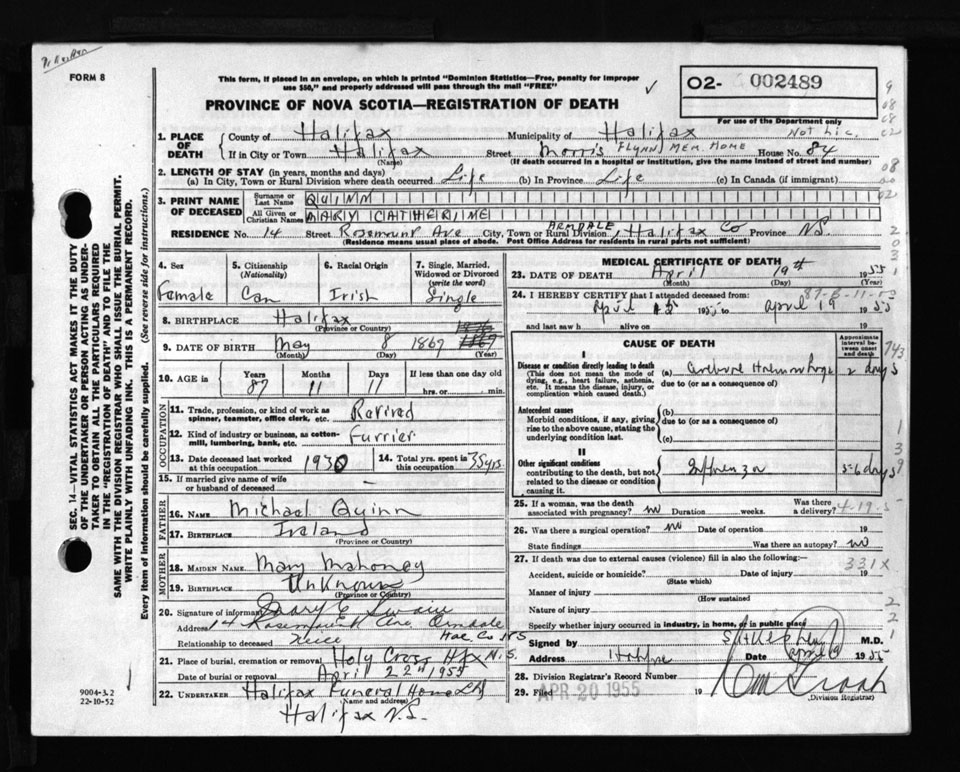 FORM 8
This form, if placed in an envelope, on which is printed "Dominion Statistics—Free, penalty for improper
use $50," and properly addressed will pass through the mail "FREE"
✓
02- 002489
For use of the Department only
Not Lic.
PROVINCE OF NOVA SCOTIA—REGISTRATION OF DEATH
1. PLACE OF DEATH
County of Halifax Municipality of Halifax
If in City or Town Halifax Street Morris FLYNN MEM. HOME House No. 84
(Name) (If death occurred in a hospital or institution, give the name instead of street and number)
2. LENGTH OF STAY (in years, months and days)
(a) In City, Town or Rural Division where death occurred Life (b) In Province Life (c) In Canada (if immigrant)
3. PRINT NAME OF DECEASED
Surname or Last Name QUINN
All Given or Christian Names MARY CATHERINE
RESIDENCE No. 14 Street Rosemount Ave City, Town or Rural Division ARMDALE, Halifax Co Province N.S.
(Residence means usual place of abode. Post Office Address for residents in rural parts not sufficient)
4. Sex
Female
5. Citizenship (Nationality)
Can
6. Racial Origin
Irish
7. Single, Married, Widowed or Divorced (write the word)
Single
8. BIRTHPLACE Halifax
(Province or Country)
9. DATE OF BIRTH May 8 1867
(Month) (Day) (Year)
10. AGE in
Years 87
Months 11
Days 11
If less than one day old
hrs. or min.
OCCUPATION
11. Trade, profession, or kind of work as spinner, teamster, office clerk, etc. Retired
12. Kind of industry or business, as cotton-mill, lumbering, bank, etc. Furrier
13. Date deceased last worked at this occupation 1930
14. Total yrs. spent in this occupation 35 yrs.
15. If married give name of wife or husband of deceased –
FATHER
16. NAME Michael Quinn
17. BIRTHPLACE Ireland
(Province or Country)
MOTHER
18. MAIDEN NAME Mary Mahoney
19. BIRTHPLACE Unknown
(Province or Country)
20. Signature of informant Mary E Swain
Address 14 Rosemount Ave Armdale
Hfx. Co NS
Relationship to deceased Niece
21. Place of burial, cremation or removal Holy Cross Hfx N.S.
Date of burial or removal April 22nd 1955
22. UNDERTAKER Halifax Funeral Home Ltd
(Name and address)
Halifax N.S.
9004-3.2
22-10-52
SEC. 14—VITAL STATISTICS ACT MAKES IT THE DUTY
OF THE UNDERTAKER OR PERSON ACTING AS UNDER-
TAKER TO OBTAIN ALL THE PARTICULARS REQUIRED
IN THE "REGISTRATION OF DEATH" AND TO FILE THE
SAME WITH THE DIVISION REGISTRAR WHO SHALL ISSUE THE BURIAL PERMIT.
WRITE PLAINLY WITH UNFADING INK. THIS IS A PERMANENT RECORD.
Every item of information should be carefully supplied. (See reverse side for instructions.)
MEDICAL CERTIFICATE OF DEATH
23. DATE OF DEATH April 19th 1955
(Month) (Day) (Year)
24. I HEREBY CERTIFY that I attended deceased from:
87-8-11-
April 15 1955 to April 19 1955
and last saw h alive on 19
CAUSE OF DEATH
Approximate interval between onset and death
743
I
Disease or condition directly leading to death
(This does not mean the mode of dying, e.g., heart failure, asthenia, etc. It means the disease, injury, or complication which caused death.)
(a) Cerebral Hemorrhage 2 days
due to (or as a consequence of)
Antecedent causes
Morbid conditions, if any, giving rise to the above cause, stating the underlying condition last.
(b)
due to (or as a consequence of)
(c)
II
Other significant conditions
contributing to the death, but not related to the disease or condition causing it.
Influenza 5-6 days
25. If a woman, was the death associated with pregnancy? no Duration weeks. Was there a delivery?
4-19-5
26. Was there a surgical operation? no Date of operation 19
State findings Was there an autopsy? no
27. If death was due to external causes (violence) fill in also the following:—
331X
Accident, suicide or homicide? Date of injury 19
(State which)
Manner of injury
(How sustained
Nature of injury
Specify whether injury occurred in industry, in home, or in public place
Signed by M.D.
Address Halifax Date April 1955
28. Division Registrar's Record Number
29. Filed APR 20 1955 19
(Division Registrar)